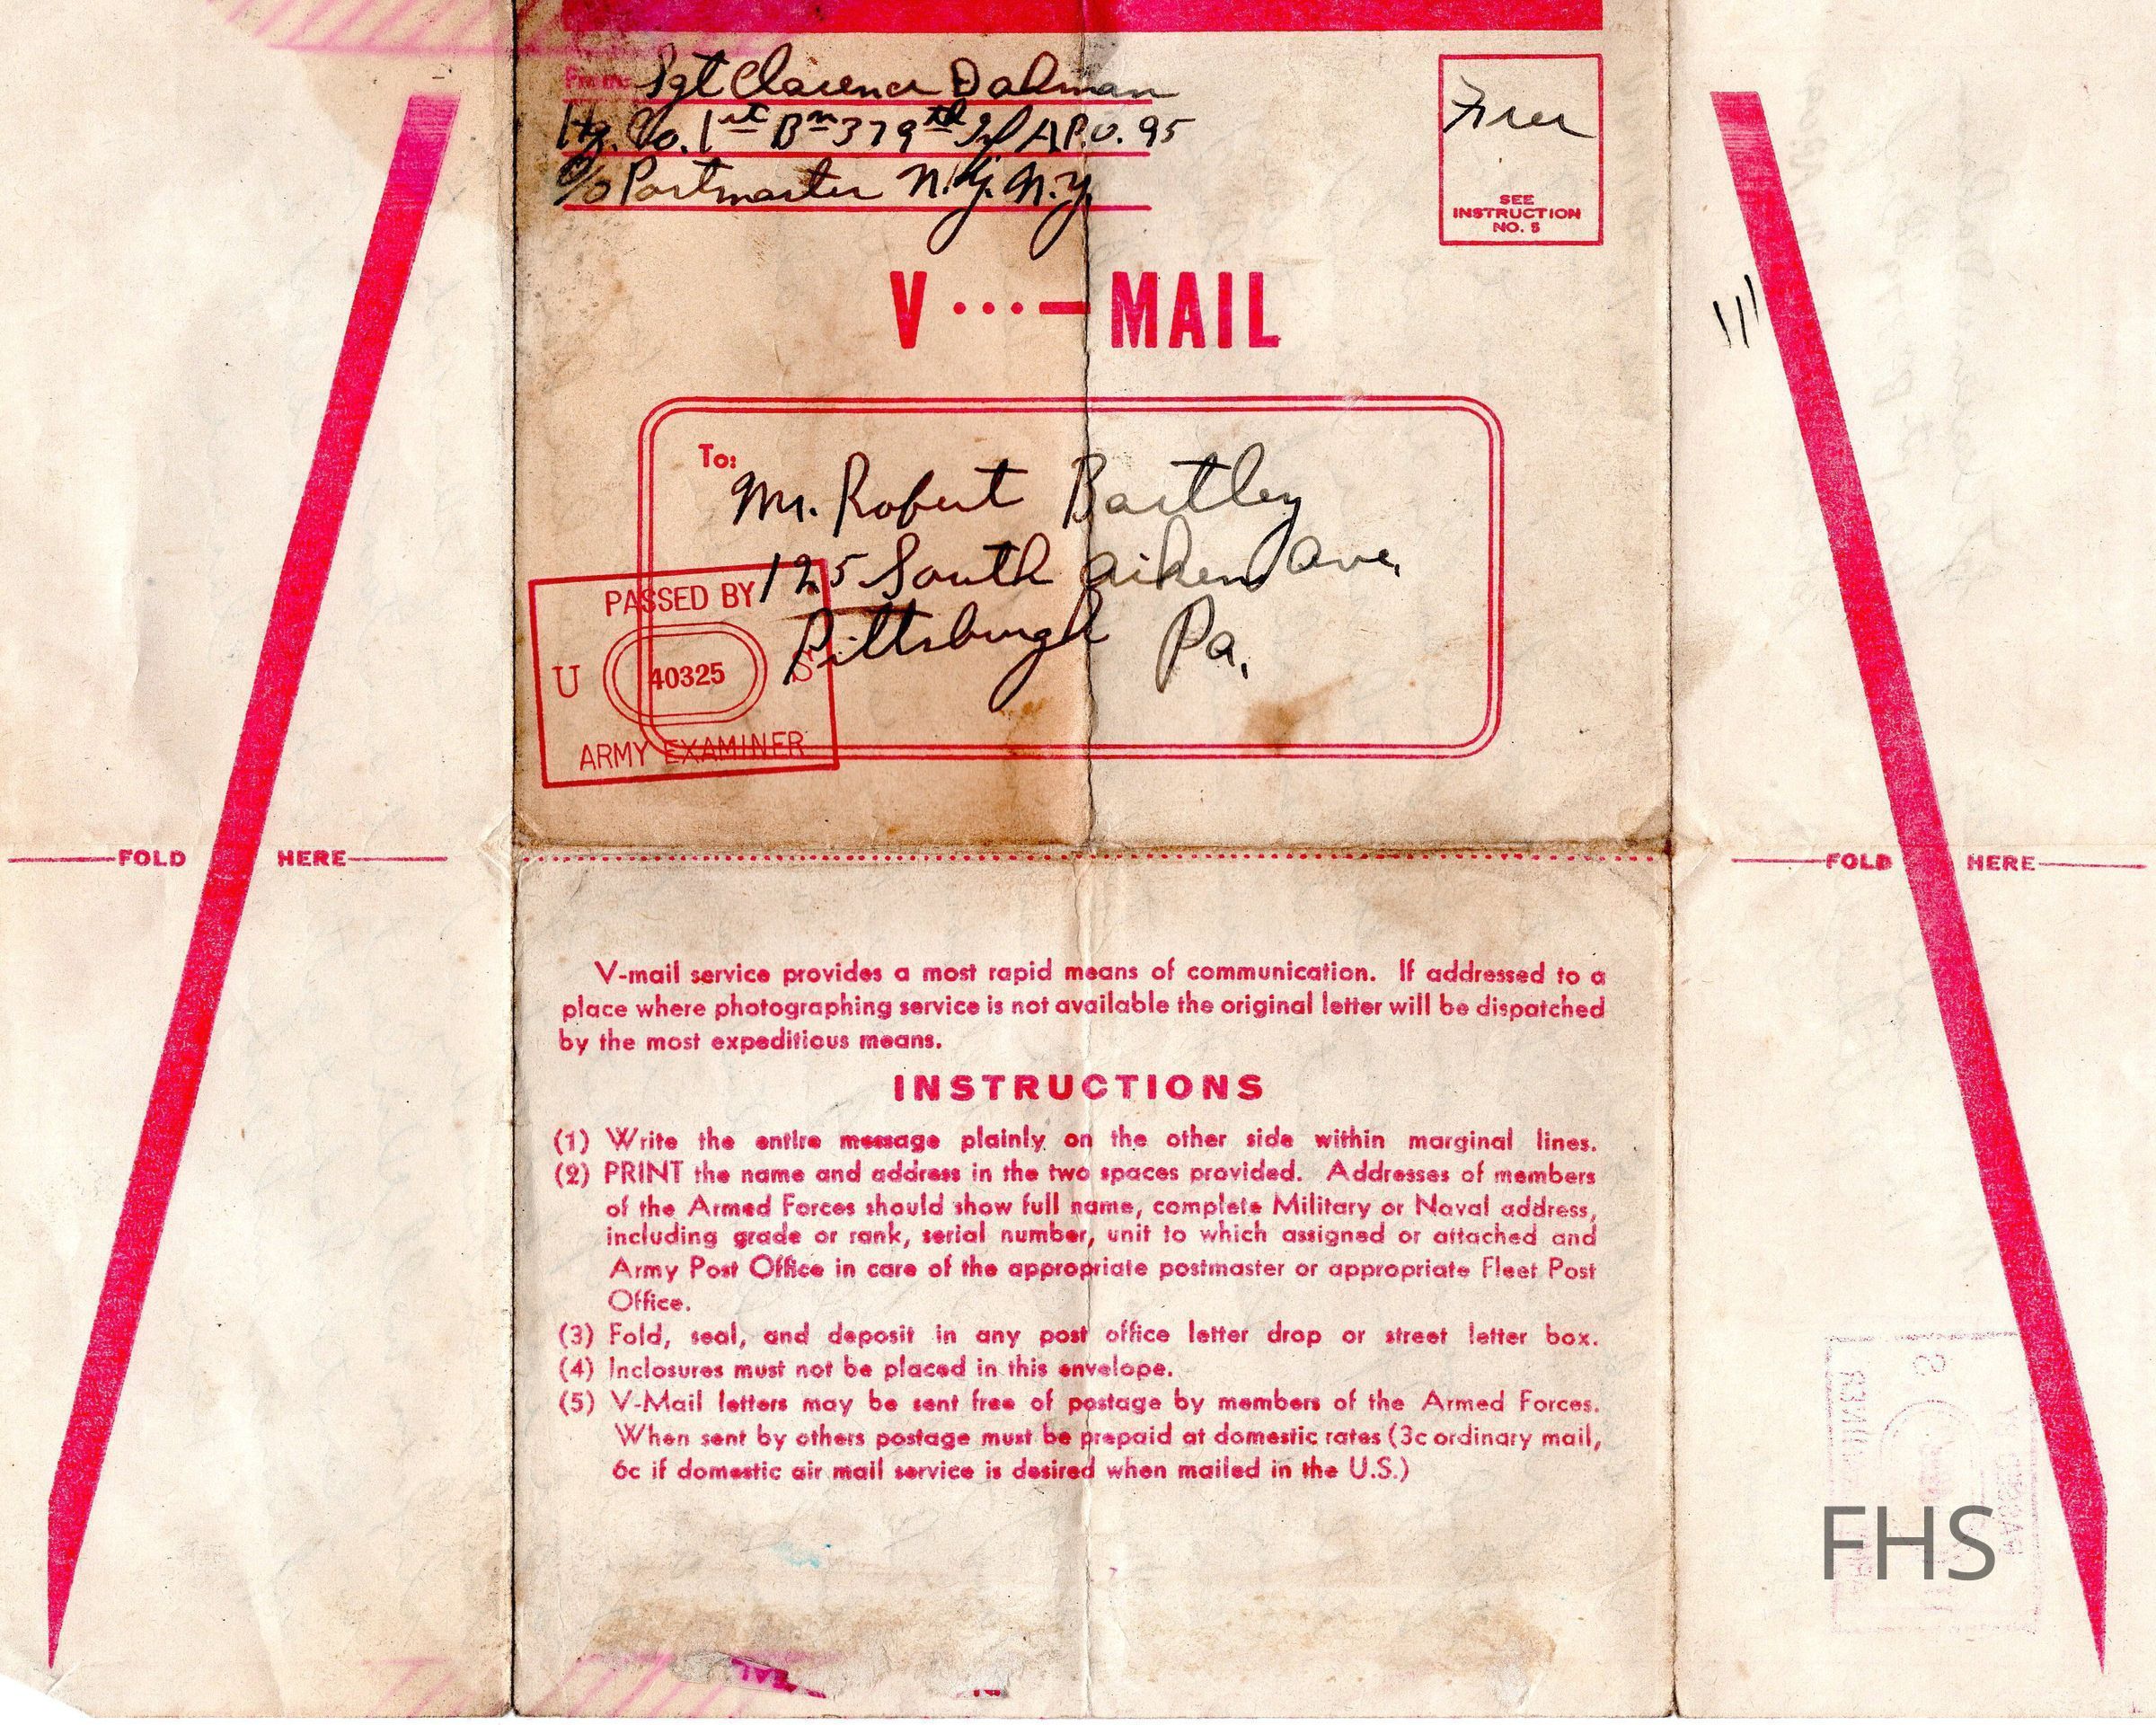 From: Sgt Clarence Dahman
Hq. Co. 1st Bn 379th Inf A.P.O. 95
c/o Postmaster N.Y. N.Y.
Free
SEE
INSTRUCTION
NO. 5
V ...— MAIL
To:
Mr. Robert Bartley
125 South Aiken Ave.
Pittsburgh Pa.
PASSED BY
U 40325 S
ARMY EXAMINER
FOLD HERE
FOLD HERE
V-mail service provides a most rapid means of communication. If addressed to a
place where photographing service is not available the original letter will be dispatched
by the most expeditious means.
INSTRUCTIONS
(1) Write the entire message plainly on the other side within marginal lines.
(2) PRINT the name and address in the two spaces provided. Addresses of members
of the Armed Forces should show full name, complete Military or Naval address,
including grade or rank, serial number, unit to which assigned or attached and
Army Post Office in care of the appropriate postmaster or appropriate Fleet Post
Office.
(3) Fold, seal, and deposit in any post office letter drop or street letter box.
(4) Inclosures must not be placed in this envelope.
(5) V-Mail letters may be sent free of postage by members of the Armed Forces.
When sent by others postage must be prepaid at domestic rates (3c ordinary mail,
6c if domestic air mail service is desired when mailed in the U.S.)
FHS